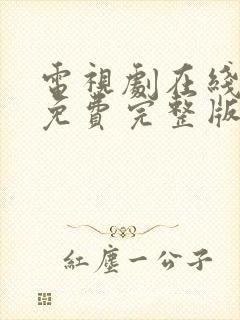 電視劇在綫
免費完整版
紅塵一公子